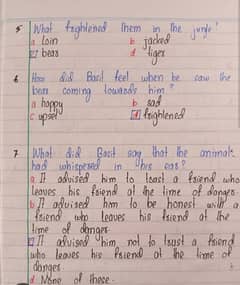 5 What frighlened them in the jungle?
a loin b jacked
c bear d tiger
6 How did Basit feel when be saw the
bear coming lowards him?
a happy b sad
c upset d frighlened
7 What did Basit say that the animal
had whispered in his ear?
a It advised him to trast a friend who
leaves his friend at the time of danger
b It advised him to be honest with a
friend who leaves his friend at the
time of danger
c It advised him not to trast a friend
who leaves his friend at the time of
danger
d None of these.